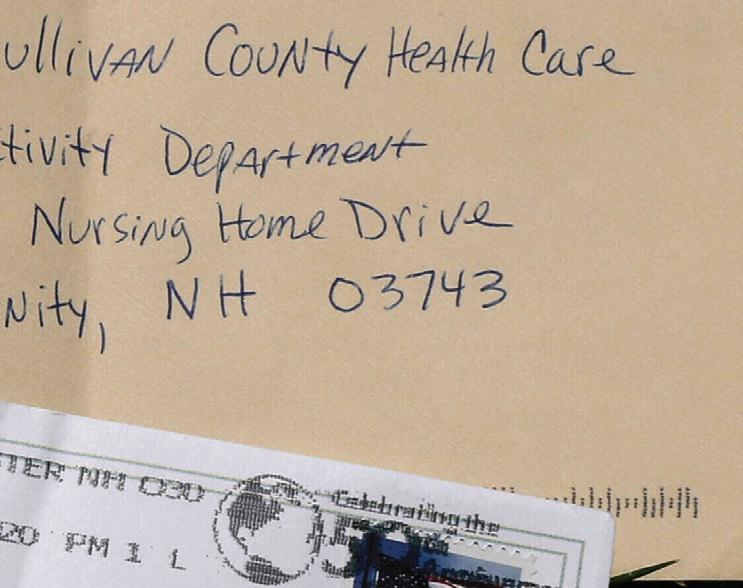 ullivan County Health Care
tivity Department
Nursing Home Drive
nity, NH 03743
TER NH 030
20 PM 1 L
Celebrating the